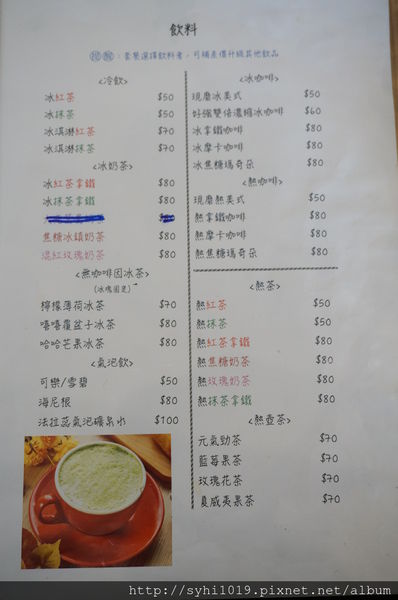 飲料
提醒：套餐選擇飲料者，可補差價升級其他飲品
<冷飲>
冰紅茶 $50
冰抹茶 $50
冰淇淋紅茶 $70
冰淇淋抹茶 $70
<冰奶茶>
冰紅茶拿鐵 $80
冰抹茶拿鐵 $80
焦糖冰鎮奶茶 $80
混紅玫瑰奶茶 $80
<無咖啡因冰茶>
(冰塊固定)
檸檬薄荷冰茶 $70
嘻嘻覆盆子冰茶 $80
哈哈芒果冰茶 $80
<氣泡飲>
可樂/雪碧 $50
海尼根 $80
法拉蕊氣泡礦泉水 $100
<冰咖啡>
現磨冰美式 $50
好強雙倍濃縮冰咖啡 $60
冰拿鐵咖啡 $80
冰摩卡咖啡 $80
冰焦糖瑪奇朵 $80
<熱咖啡>
現磨熱美式 $50
熱拿鐵咖啡 $80
熱摩卡咖啡 $80
熱焦糖瑪奇朵 $80
<熱茶>
熱紅茶 $50
熱抹茶 $50
熱紅茶拿鐵 $80
熱焦糖奶茶 $80
熱玫瑰奶茶 $80
熱抹茶拿鐵 $80
<熱壺茶>
元氣勁茶 $70
藍莓果茶 $70
玫瑰花茶 $70
夏威夷果茶 $70
http://syhi1019.pixnet.net/album